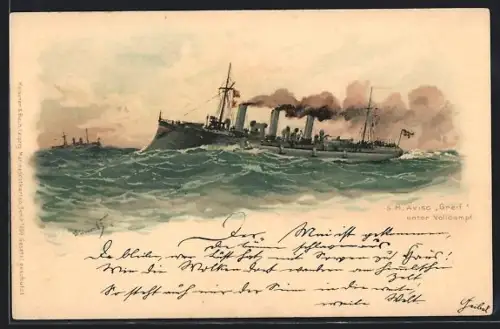 S. M. AVISO „Greif“
unter Volldampf
Der Mai ist gekommen,
die Bäume schlagen aus
Da bleibe, wer Lust hat, mit Sorgen zu Haus!
Wie die Wolken dort wandern am himmlischen
Zelt
So steht auch mir der Sinn in die weite,
weite Welt.
Geibel
Meissner & Buch, Leipzig